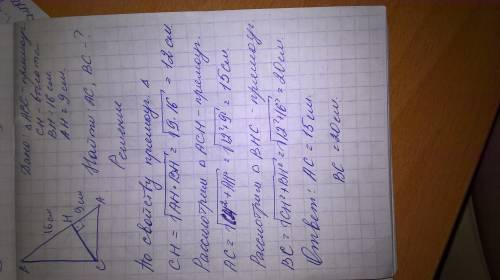 Дано: △ ABC - прямоуг.
CH - высота
BH = 16 см.
AH = 9 см.
Найти AC, BC - ?
Решение
По свойству прямоуг. △
CH = √AH · BH = √9 · 16 = 12 см.
Рассмотрим △ ACH - прямоуг.
AC = √CH² + AH² = √12² + 9² = 15 см.
Рассмотрим △ BHC - прямоуг
BC = √CH² + BH² = √12² + 16² = 20 см.
Ответ: AC = 15 см.
BC = 20 см.
B
16 см
H
9 см
A
C